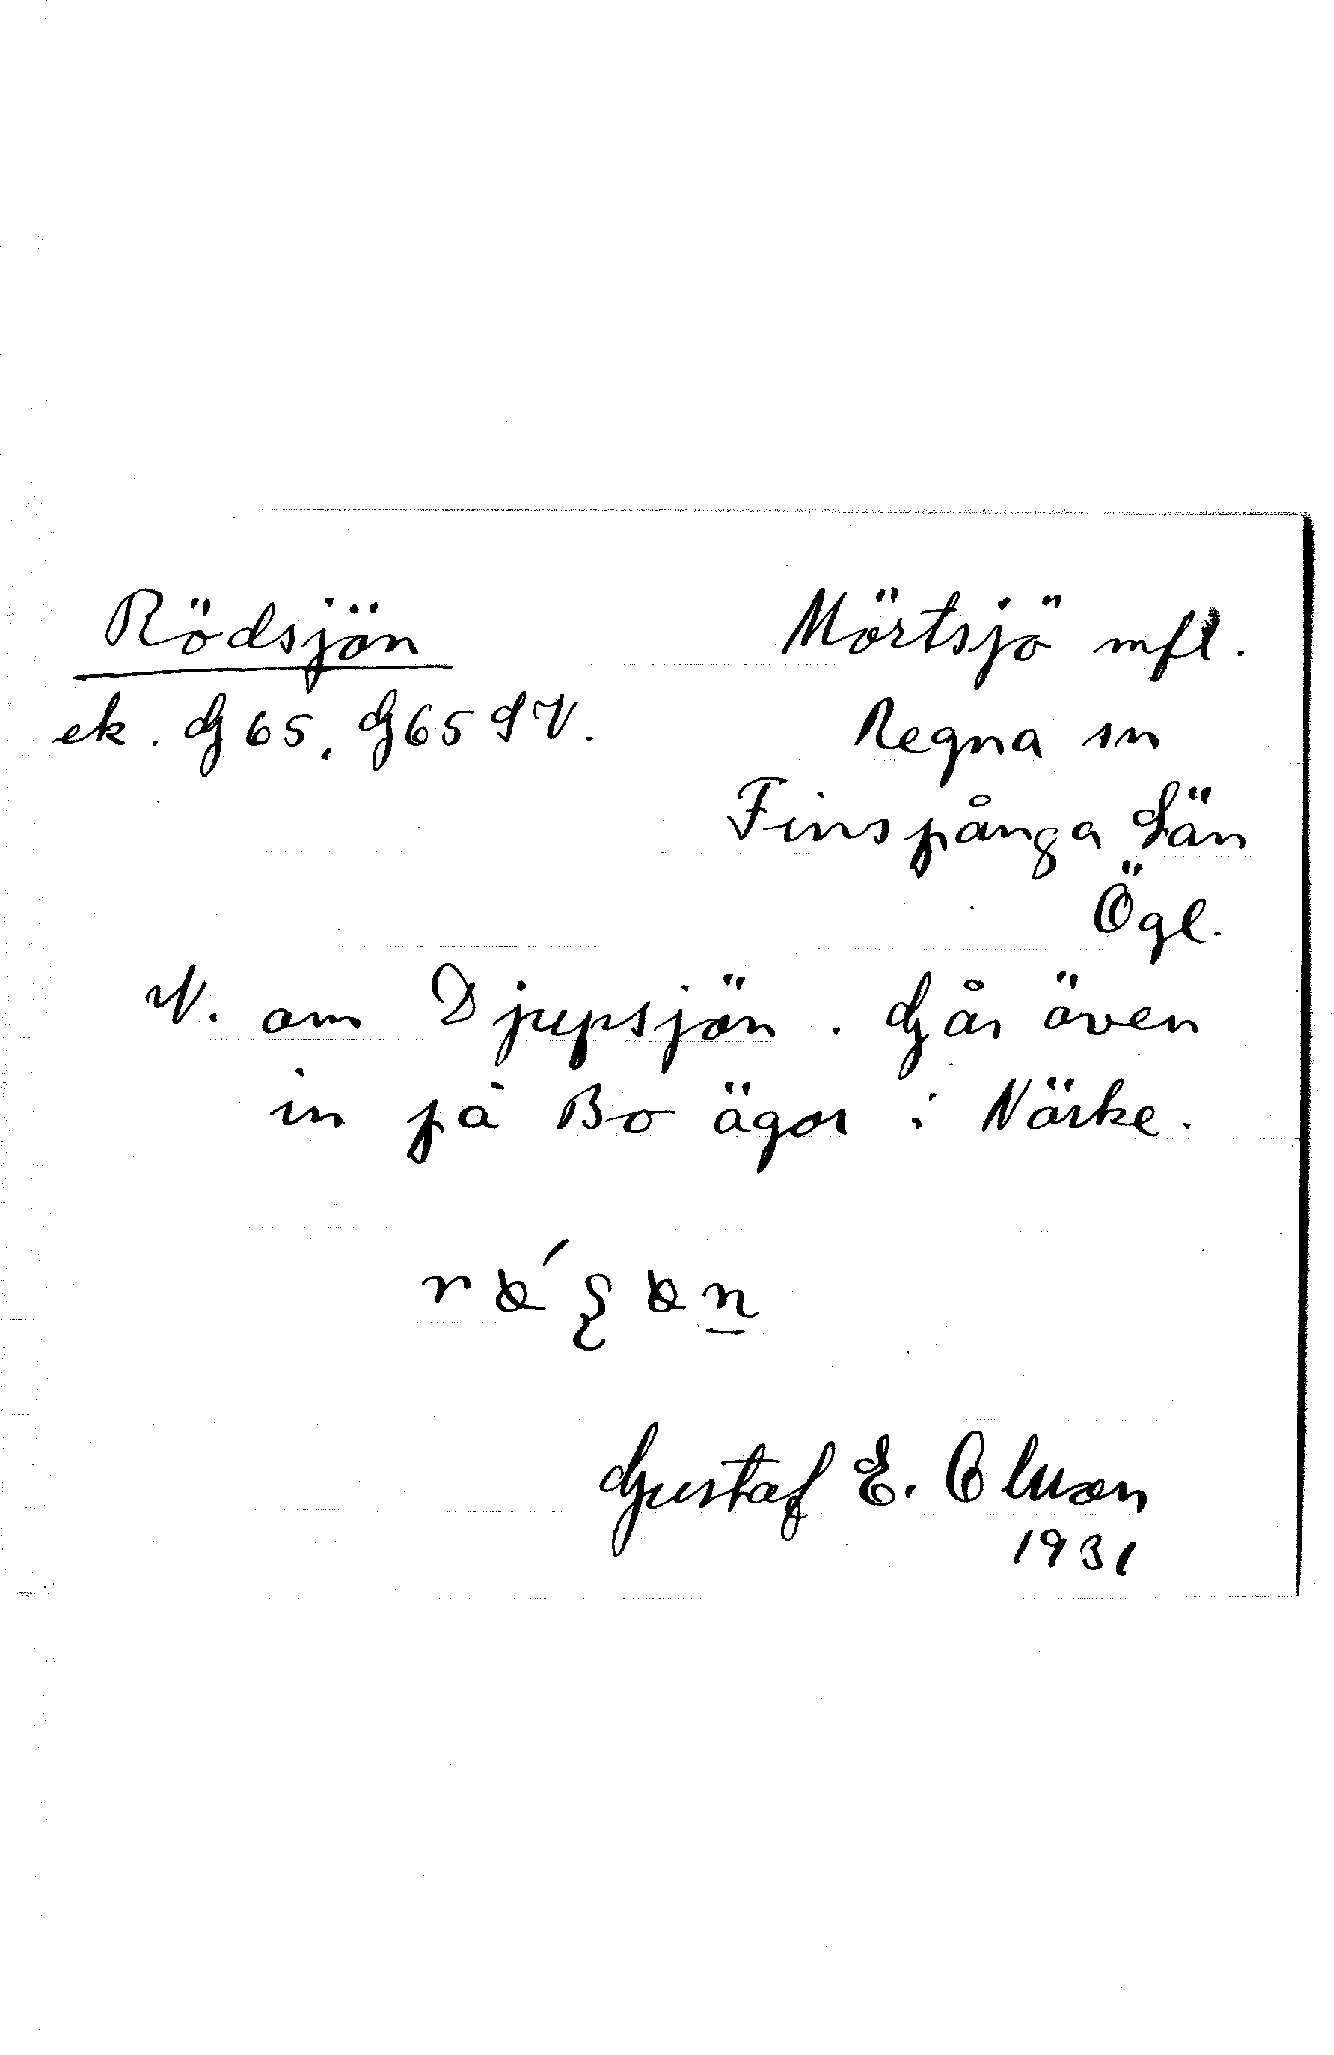 Rödsjön
Mörtsjö mfl.
ek. G 65. G 65 SV.
Regna sn
Finspånga Län
Ögl.
V. om Djupsjön. Går även
in på Bo ägor i Närke.
Gustaf E. Olsson
1931